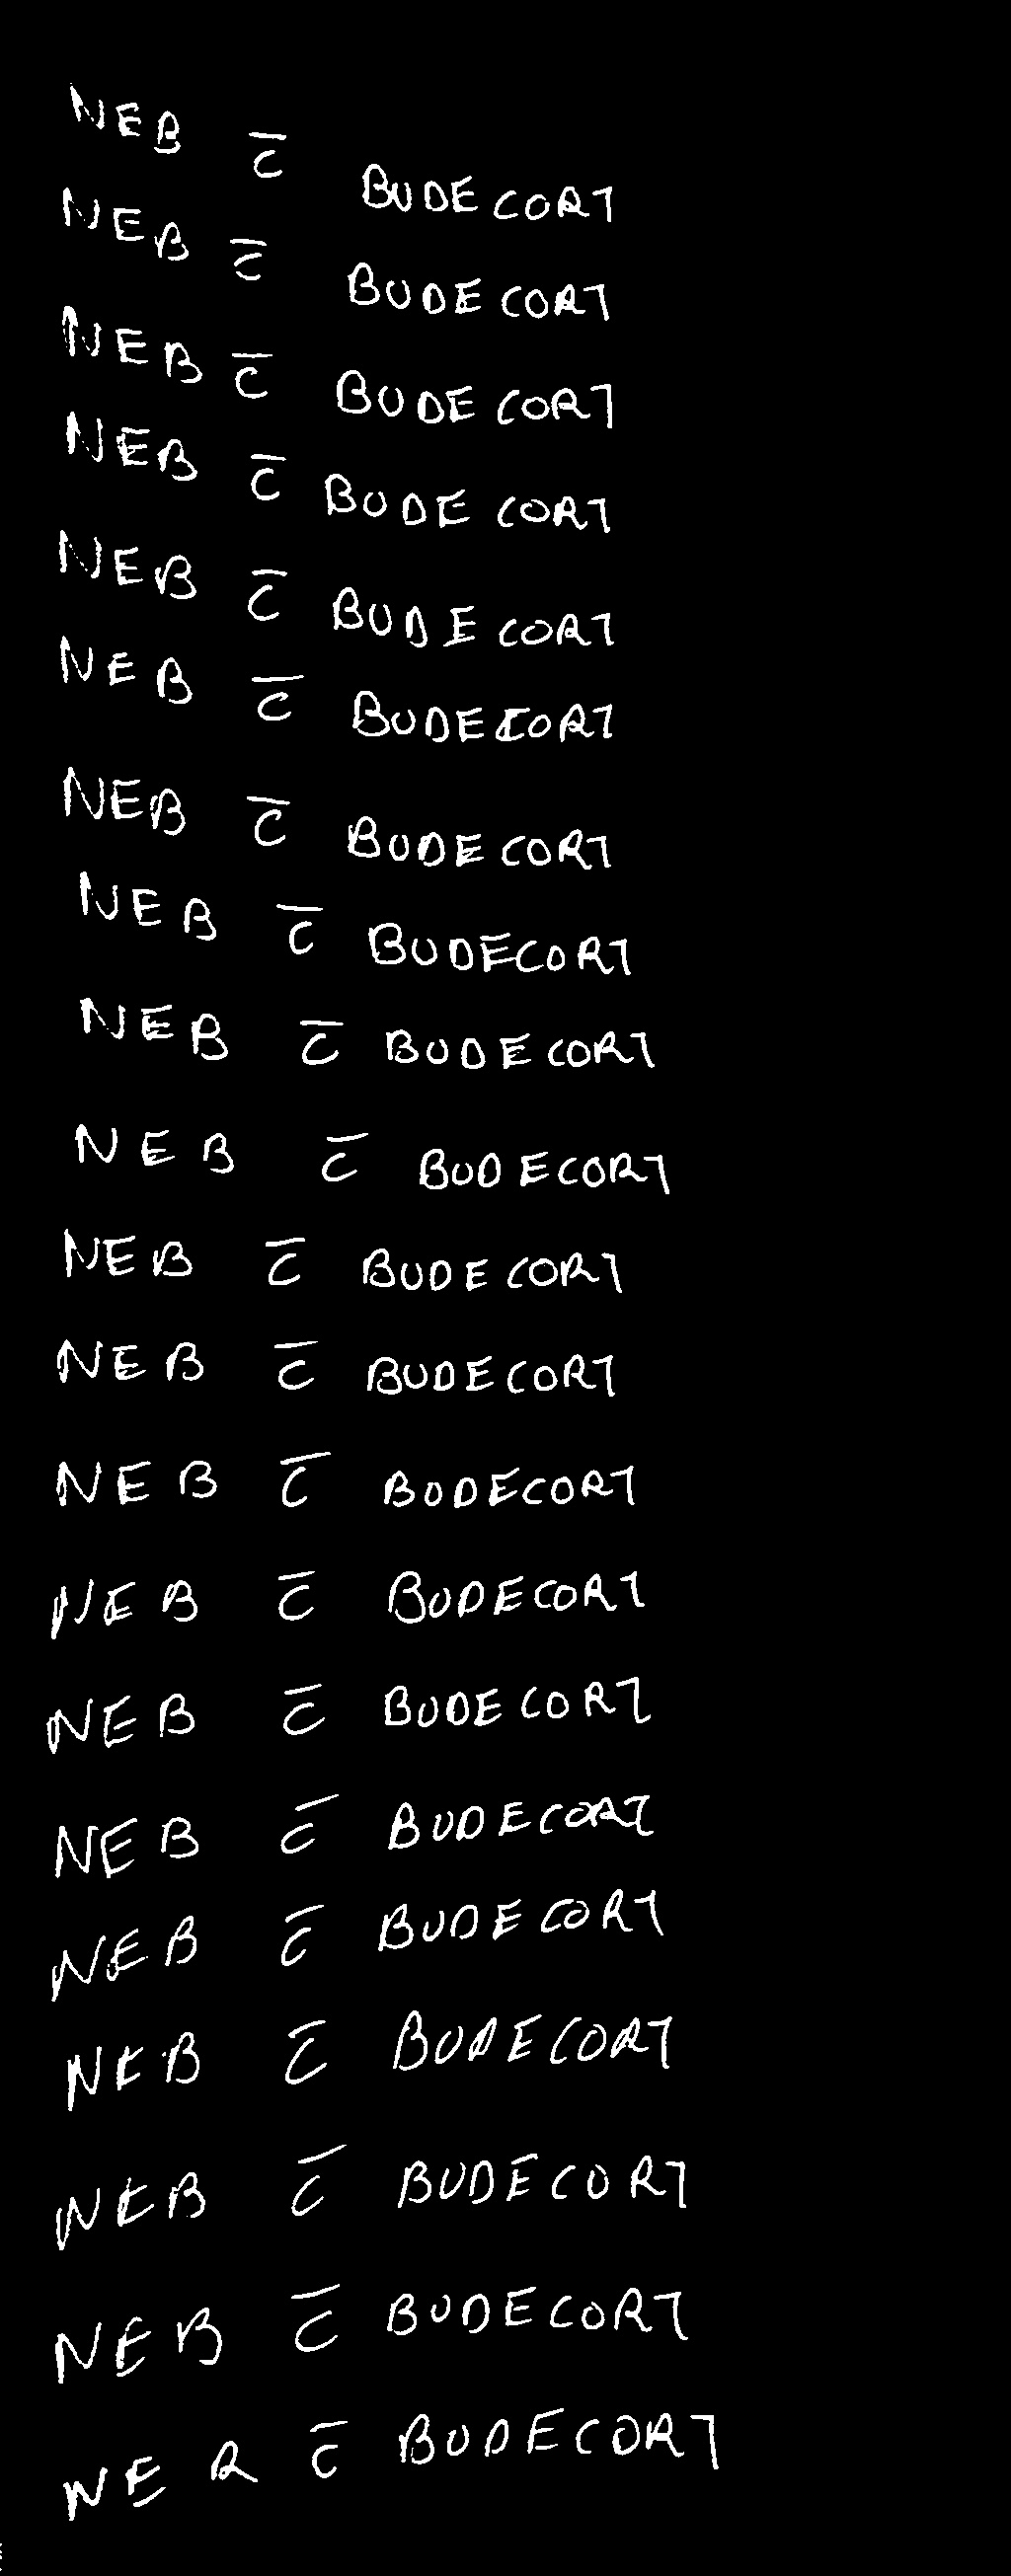 NEB c̅ BUDECORT
NEB c̅ BUDECORT
NEB c̅ BUDECORT
NEB c̅ BUDECORT
NEB c̅ BUDECORT
NEB c̅ BUDECORT
NEB c̅ BUDECORT
NEB c̅ BUDECORT
NEB c̅ BUDECORT
NEB c̅ BUDECORT
NEB c̅ BUDECORT
NEB c̅ BUDECORT
NEB c̅ BUDECORT
NEB c̅ BUDECORT
NEB c̅ BUDECORT
NEB c̅ BUDECORT
NEB c̅ BUDECORT
NEB c̅ BUDECORT
NEB c̅ BUDECORT
NEB c̅ BUDECORT
NEB c̅ BUDECORT